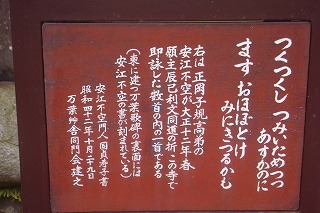 つくつくし つみいためつつ
あすかのに
ます おほぼとけ
みにきつるかも
右は正岡子規高弟の
安江不空が大正十二年春
願主辰巳利文同道の折この寺で
即詠した数首の内の一首である
(東に建つ万葉歌碑の裏面には
安江不空の書が刻まれている)
安江不空門人 国貞寿子書
昭和四十二年十月二十九日
万葉艸舎同門会建之